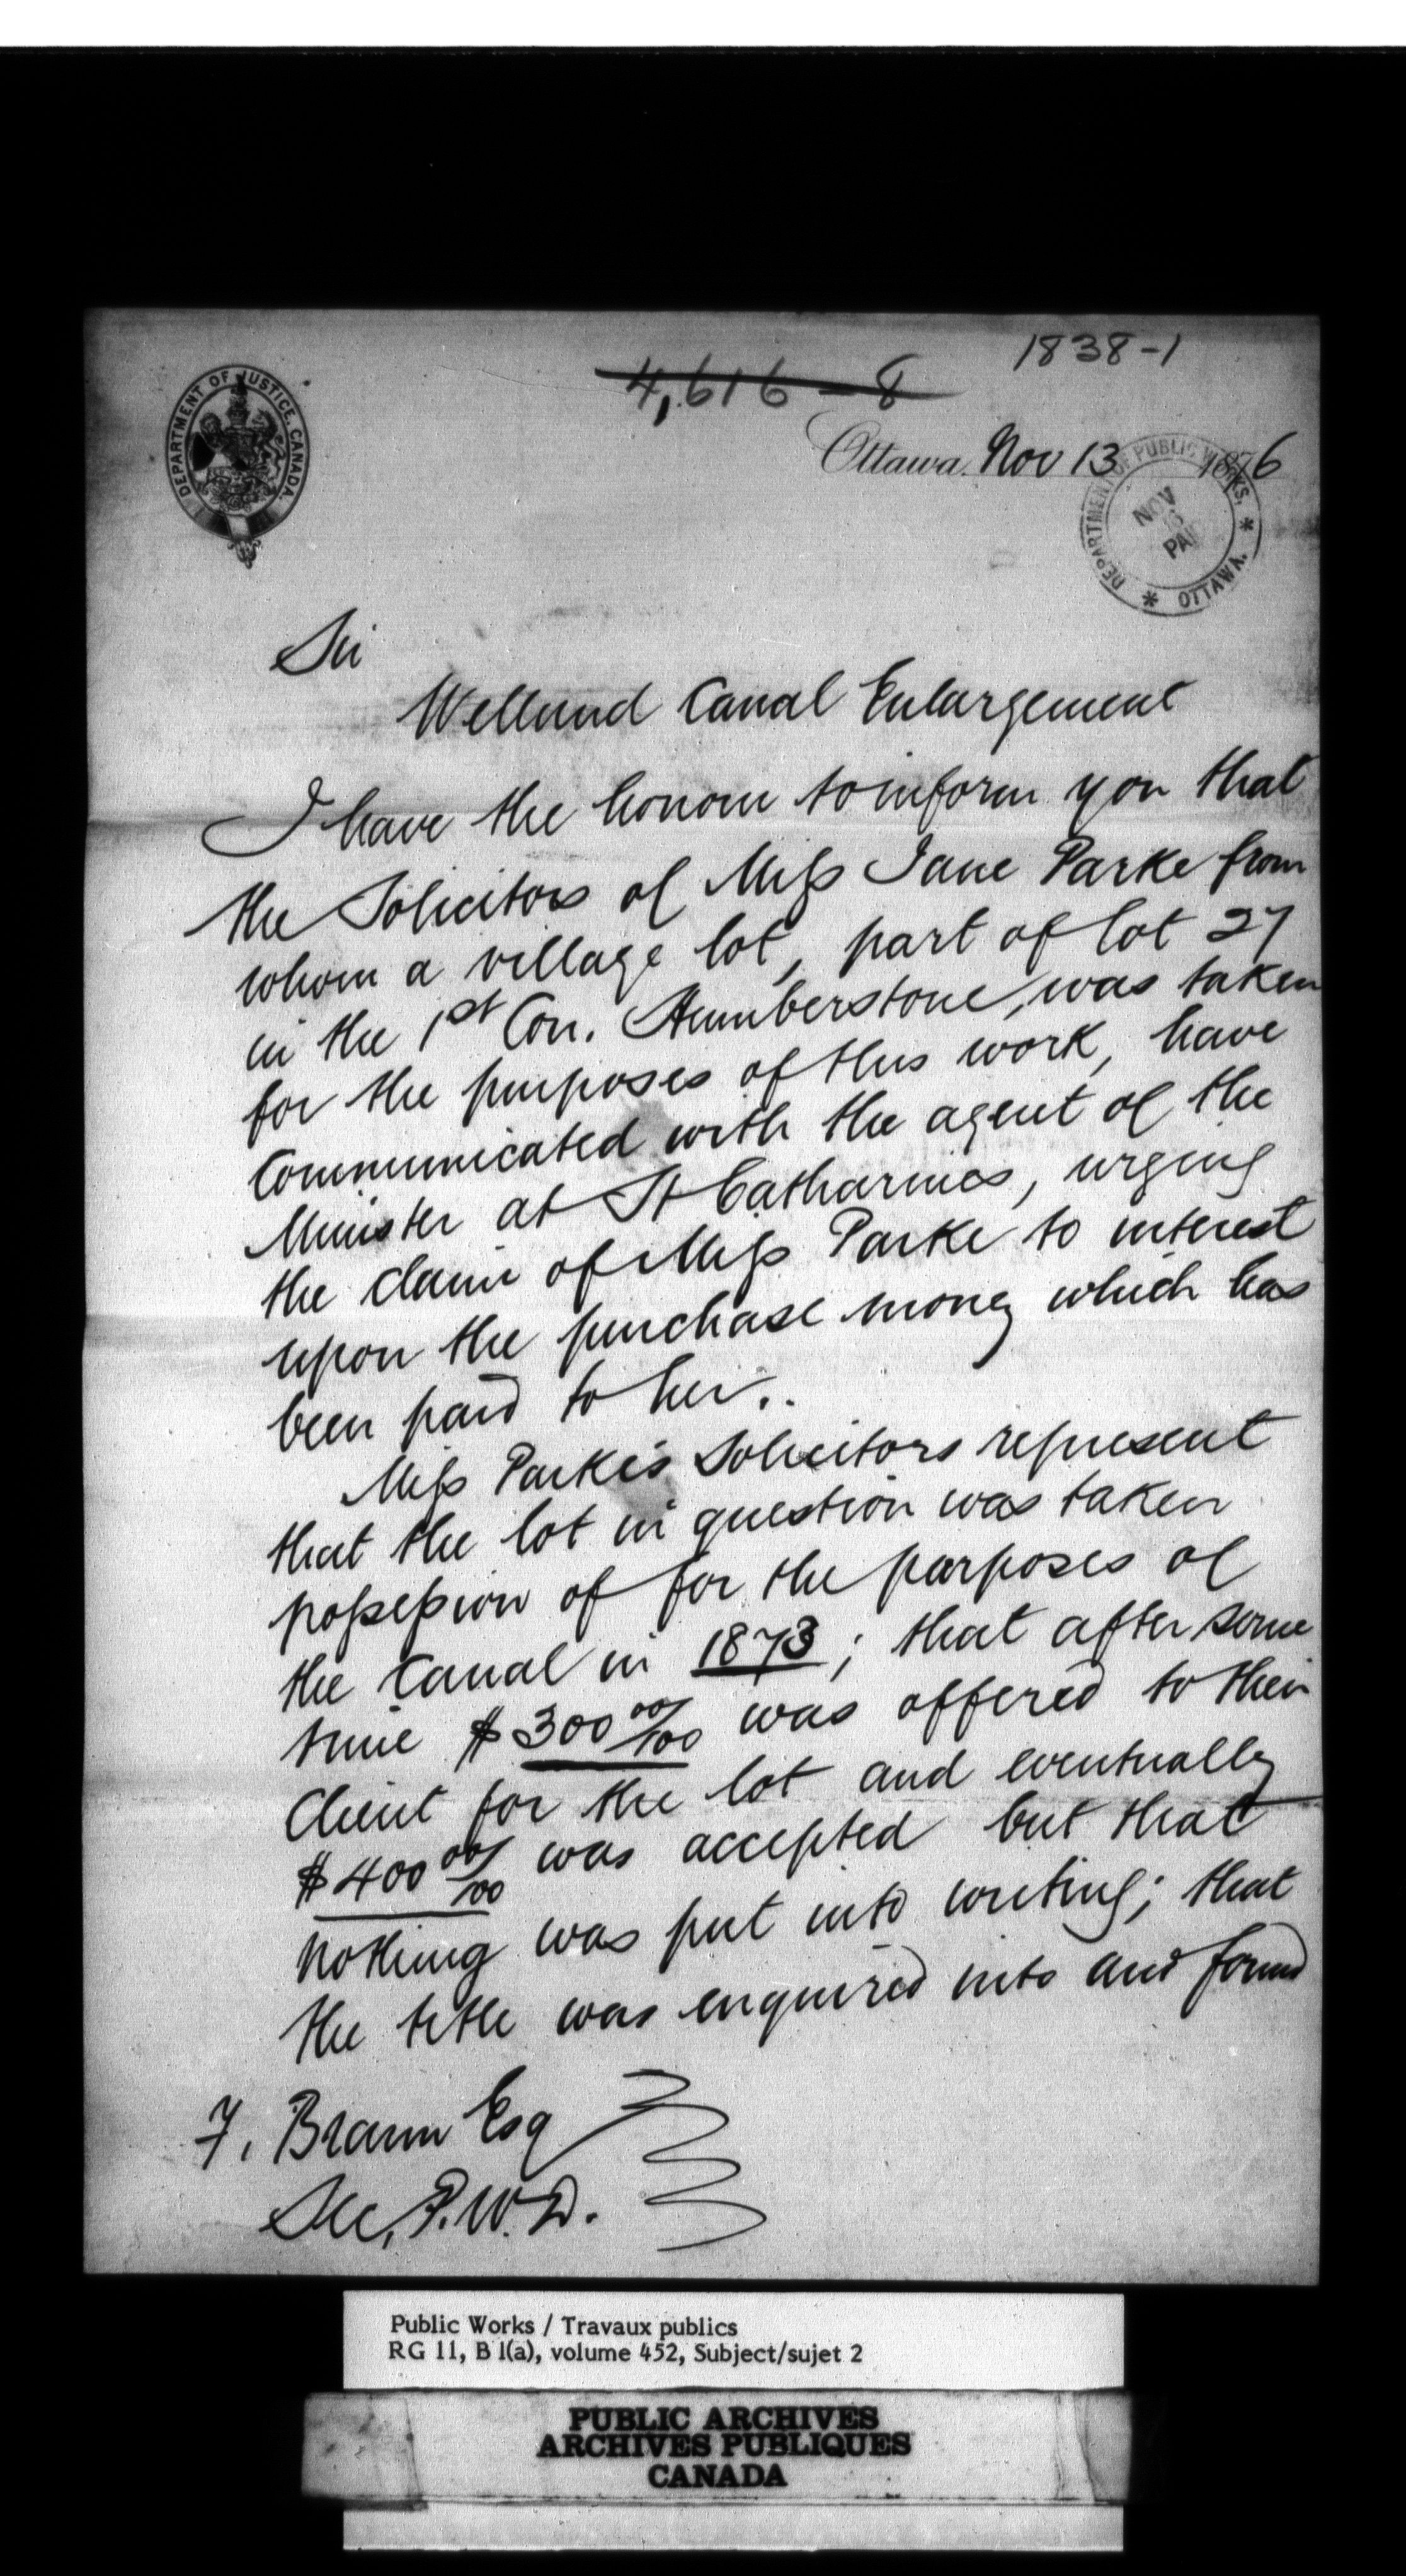 1838-1
4,616-8
DEPARTMENT OF JUSTICE, CANADA.
Ottawa, Nov 13 1876
DEPARTMENT OF PUBLIC WORKS, * OTTAWA. *
NOV
Sir
Welland Canal Enlargement
I have the honour to inform you that
the Solicitors of Miss Jane Parke from
whom a village lot, part of lot 27
in the 1st Con. Humberstone, was taken
for the purposes of this work, have
communicated with the agent of the
Minister at St Catharines, urging
the claim of Miss Parke to interest
upon the purchase money which has
been paid to her.
Miss Parke's Solicitors represent
that the lot in question was taken
possession of for the purposes of
the Canal in 1873; that after some
time $300 00/100 was offered to their
Client for the lot and eventually
$400 00/100 was accepted but that
nothing was put into writing; that
the title was enquired into and found
F. Braun Esq
Sec, P.W.D.
Public Works / Travaux publics
RG 11, B 1(a), volume 452, Subject/sujet 2
PUBLIC ARCHIVES
ARCHIVES PUBLIQUES
CANADA